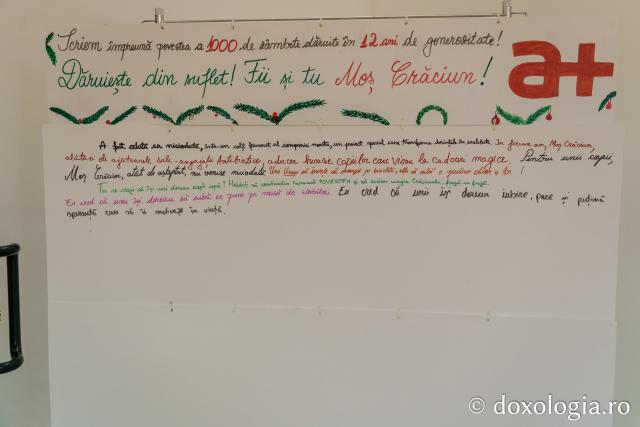 Scriem împreună povestea a 1000 de zâmbete dăruite în 12 ani de generozitate!
Dăruiește din suflet! Fii și tu Moș Crăciun!
a+
A fost odată ca niciodată, într-un colț fermecat al companiei noastre, un proiect special care transforma dorințele în realitate. În fiecare an, Moș Crăciun,
alături de ajutoarele sale - angajații Antibiotice, aducea bucurie copiilor care visau la cadouri magice. Pentru unii copii,
Moș Crăciun, atât de așteptat, nu venise niciodată. Unii visau să învețe să meargă pe bicicletă, alții să aibă o
Tu ce crezi că își mai doreau acești copii? Haideți să continuăm împreună POVESTEA și să scriem magia Crăciunului, frază cu frază.
Eu cred că unii își doreau să aibă ce pune pe masă de sărbători. Eu cred că unii își doreau iubire, pace și puțină
speranță care să îi motiveze în viață.
© doxologia.ro